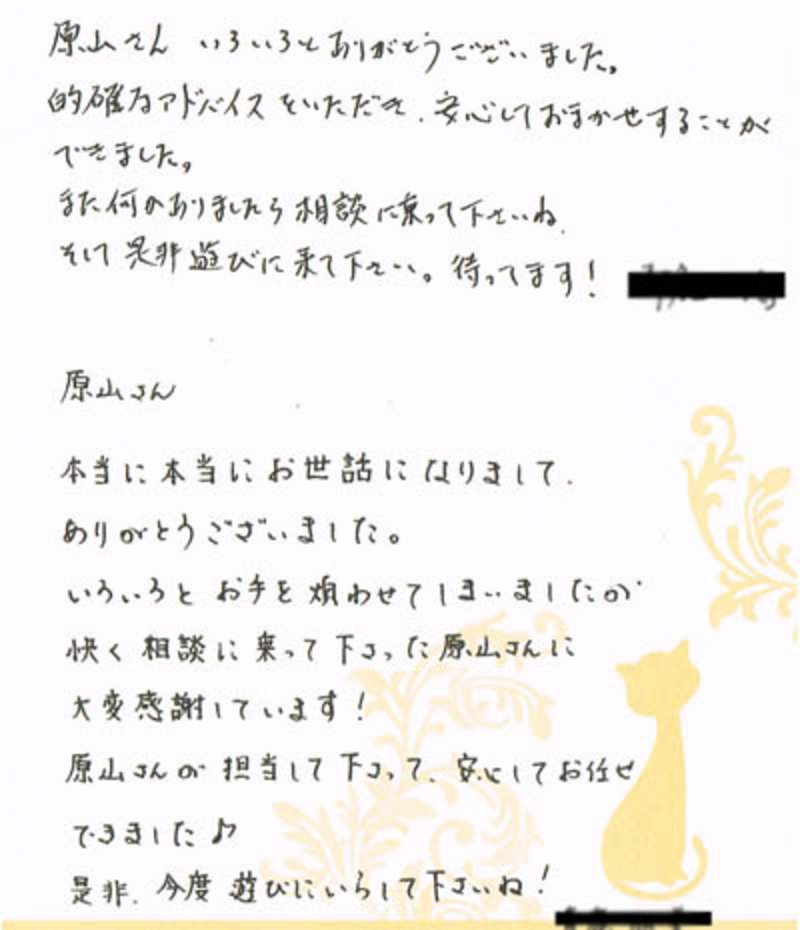 原山さん いろいろとありがとうございました。
的確なアドバイスをいただき、安心しておまかせすることが
できました。
また何かありましたら相談に乗って下さいね。
そして是非遊びに来て下さい。待ってます!
原山さん
本当に本当にお世話になりまして、
ありがとうございました。
いろいろとお手を煩わせてしまいましたが
快く相談に乗って下さった原山さんに
大変感謝しています!
原山さんが担当して下さって、安心してお任せ
できました♪
是非、今度遊びにいらして下さいね!